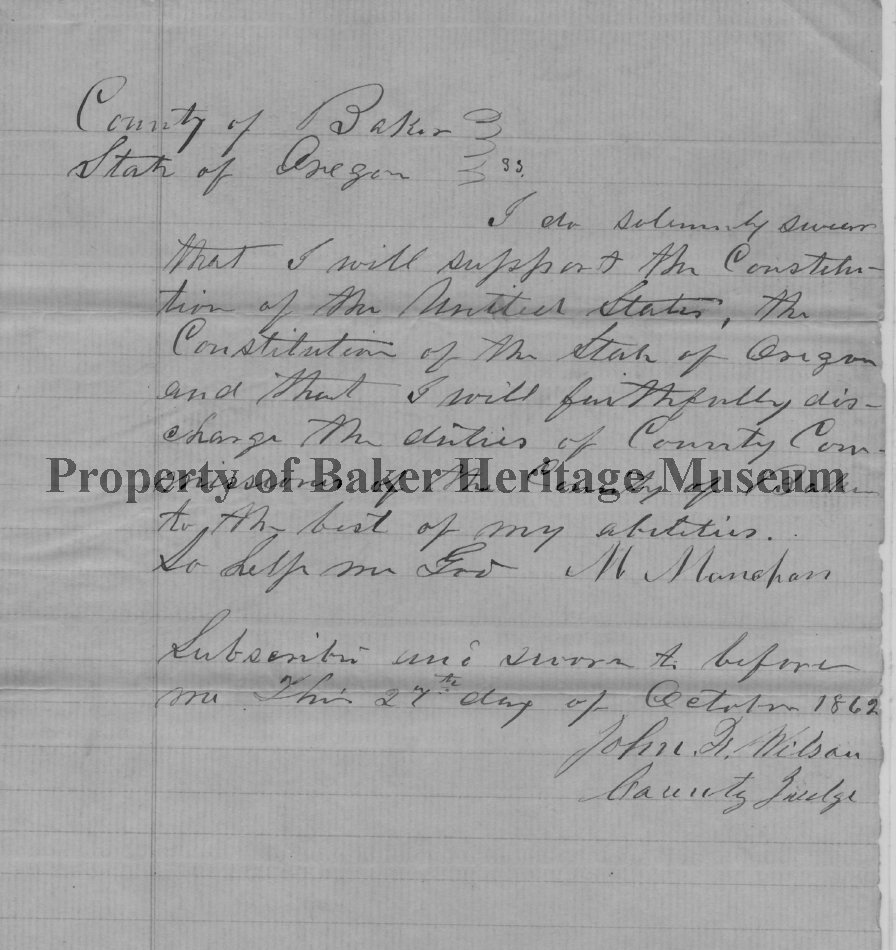 County of Baker
State of Oregon ss.
I do solemnly swear
that I will support the Constitu-
tion of the United States, the
Constitution of the State of Oregon
and that I will faithfully dis-
charge the duties of County Com-
Property of Baker Heritage Museum
missioner of the County of Baker
to the best of my abilities.
So help me God M Manahan
Subscribed and sworn to before
me This 27th day of October 1862
John Wilson
County Judge